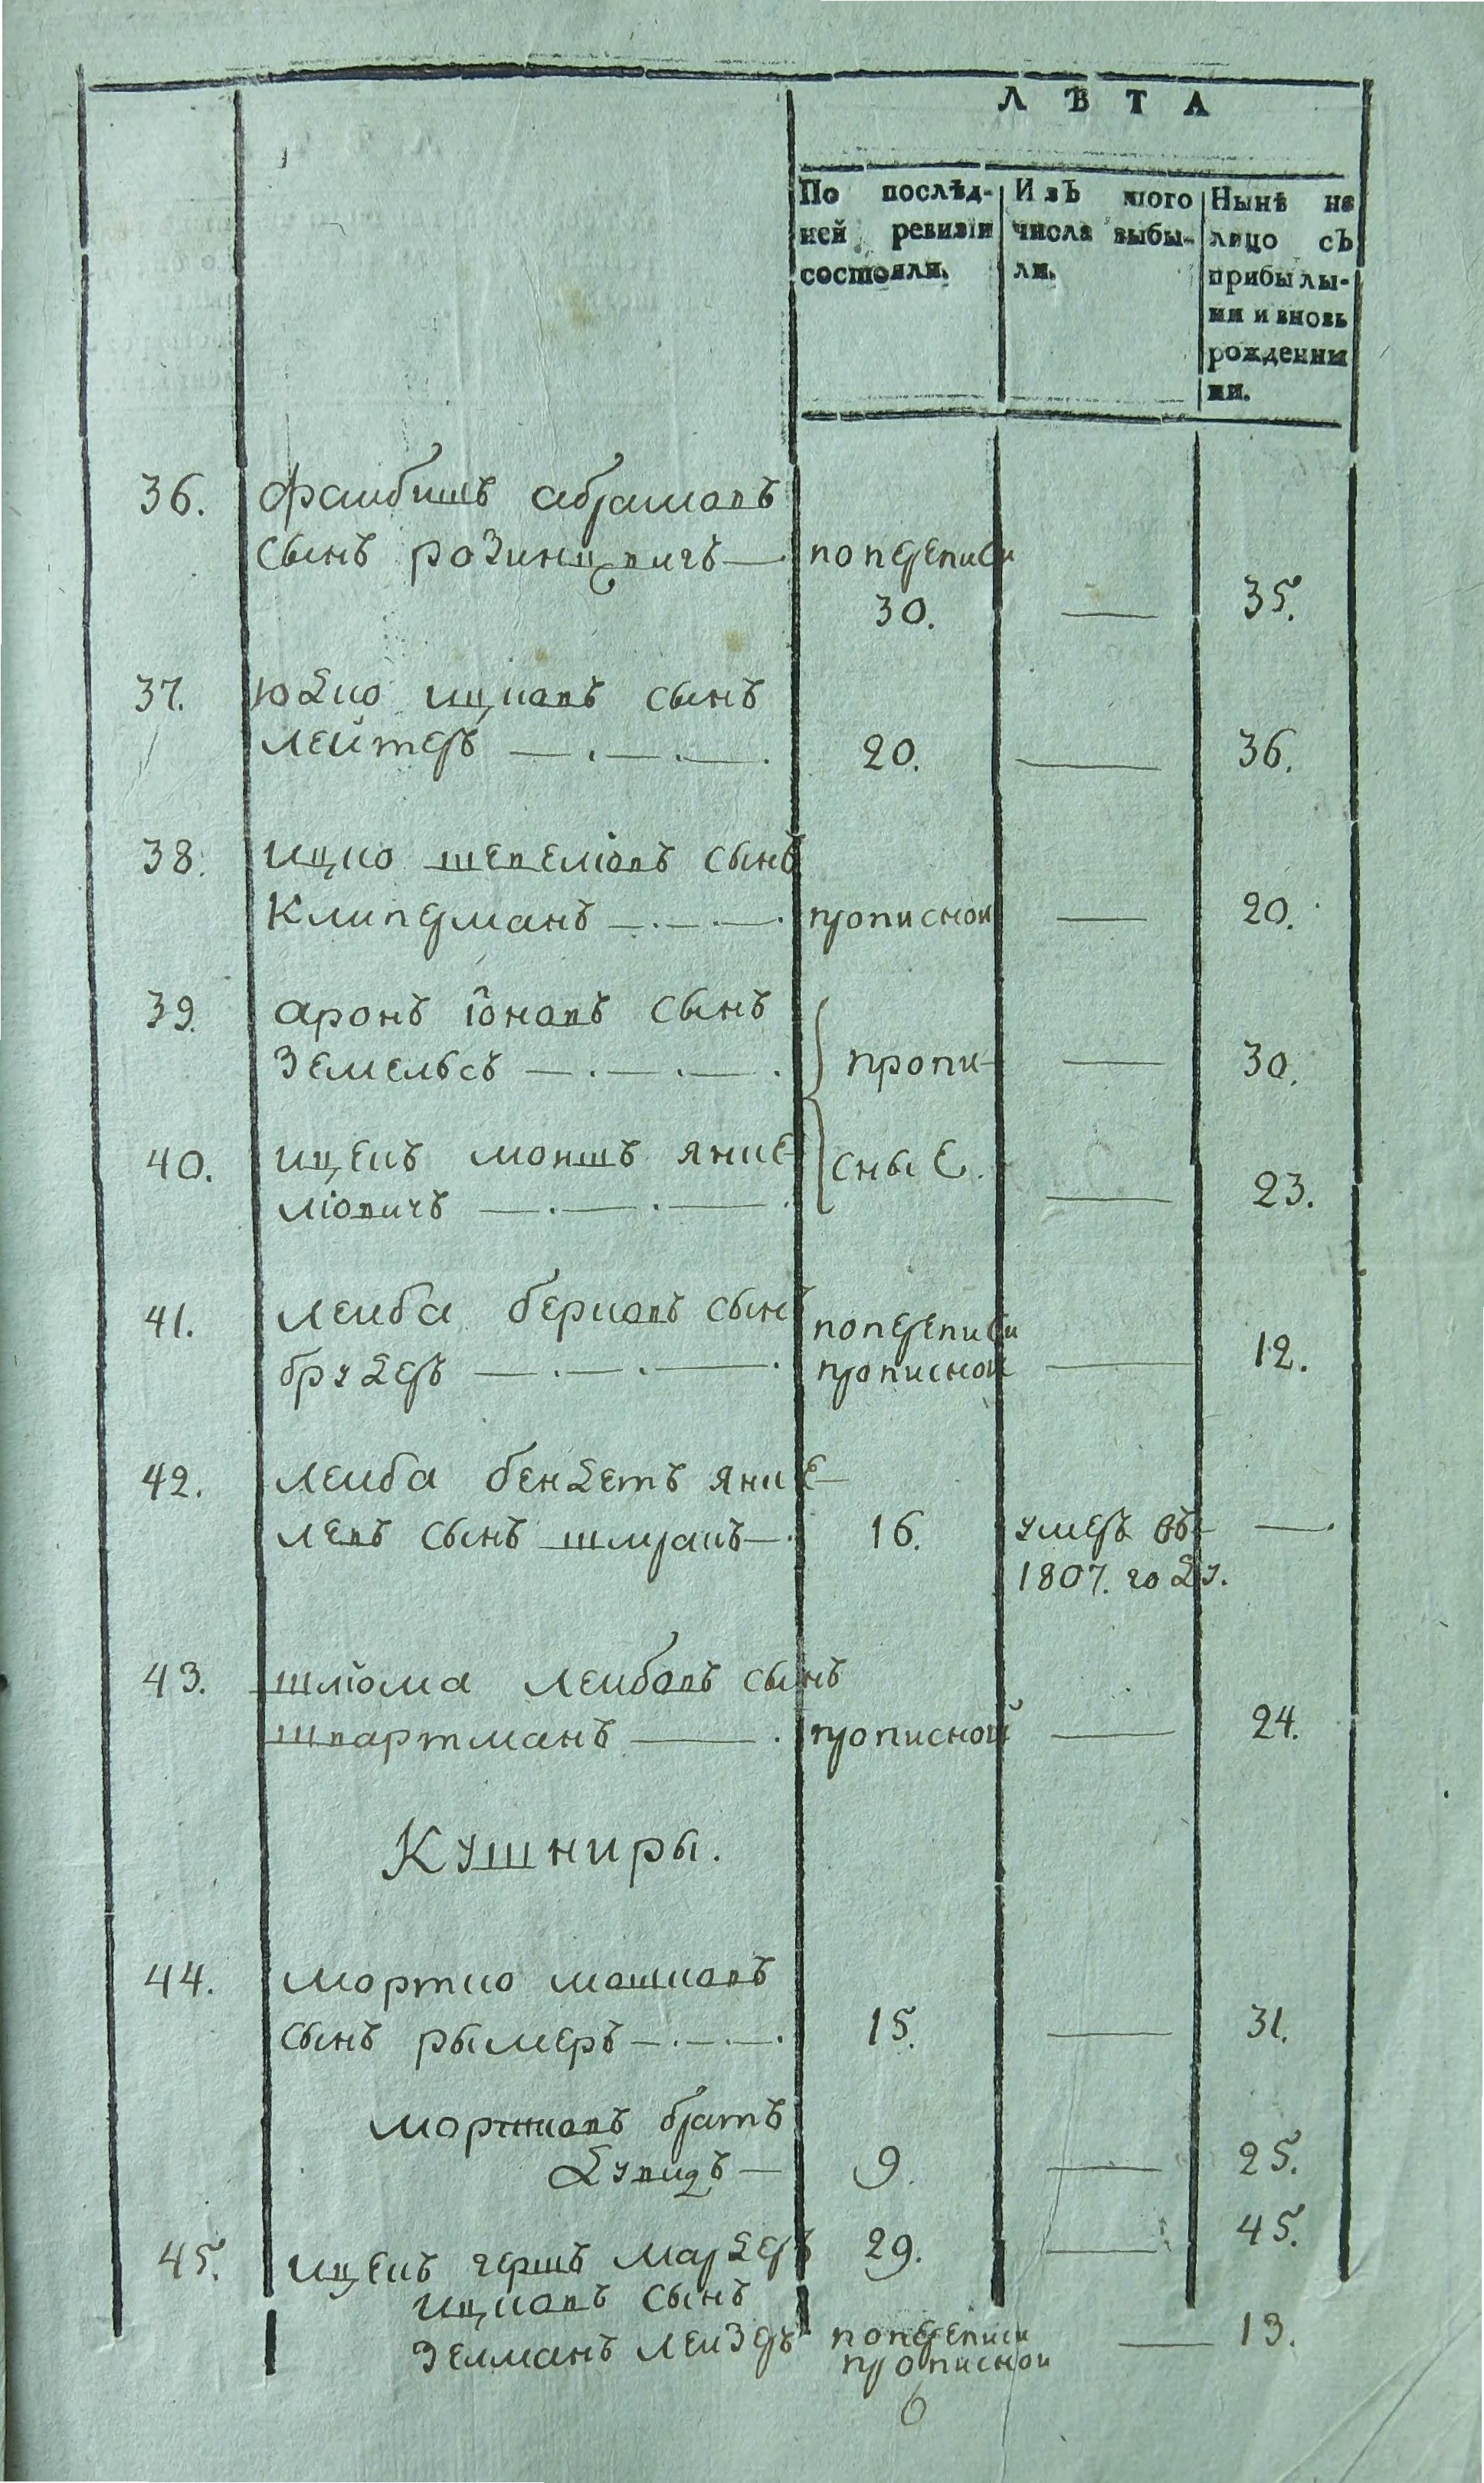 ЛѢТА
По послѣд-
ней ревизіи
состояли.
Изъ того
числа выбы-
ли.
Нынѣ на
лицо съ
прибылы-
ми и вновь
рожденны
ми.
36. Фаибишъ абрамовъ
сынъ розинцвигъ — попереписи
30. — 35.
37. Юдко ицковъ сынъ
Лейтеръ — . — . — . 20. — 36.
38. ицко шевеліовъ сынъ
Клиперманъ — . — . — . прописной — 20.
39. аронъ іоновъ сынъ
Земельсъ — . — . — . пропи- — 30.
40. ицекъ мовшъ янке-
ліовичъ — . — . — . сные. — 23.
41. Леиба берковъ сынъ попереписи
брудеръ — . — . — . прописной — 12.
42. Леиба бендетъ янке-
левъ сынъ шмракъ — . 16. умеръ въ — .
1807. году.
43. шліома леибовъ сынъ
швартманъ — . прописной — 24.
Кушниры.
44. Мортко мошковъ
сынъ рымеръ — . — . — . 15. — 31.
мортковъ братъ
Дувидъ — 9. — 25.
45. ицекъ гершъ мардеръ 29. — 45.
ицковъ сынъ
Зелманъ Леизеръ попереписи — 13.
прописной
6